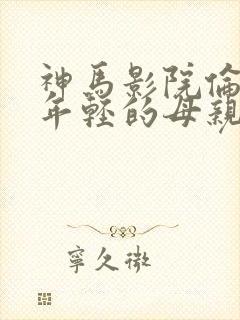 神馬影院倫
年輕的母親
寧久微